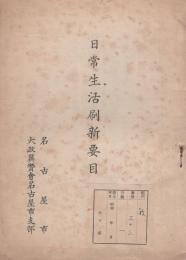 日常生活刷新要目
名古屋市
大政翼賛會名古屋市支部